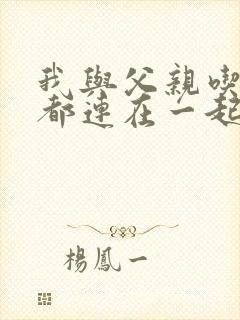 我與父親喫
都連在一起
楊鳳一